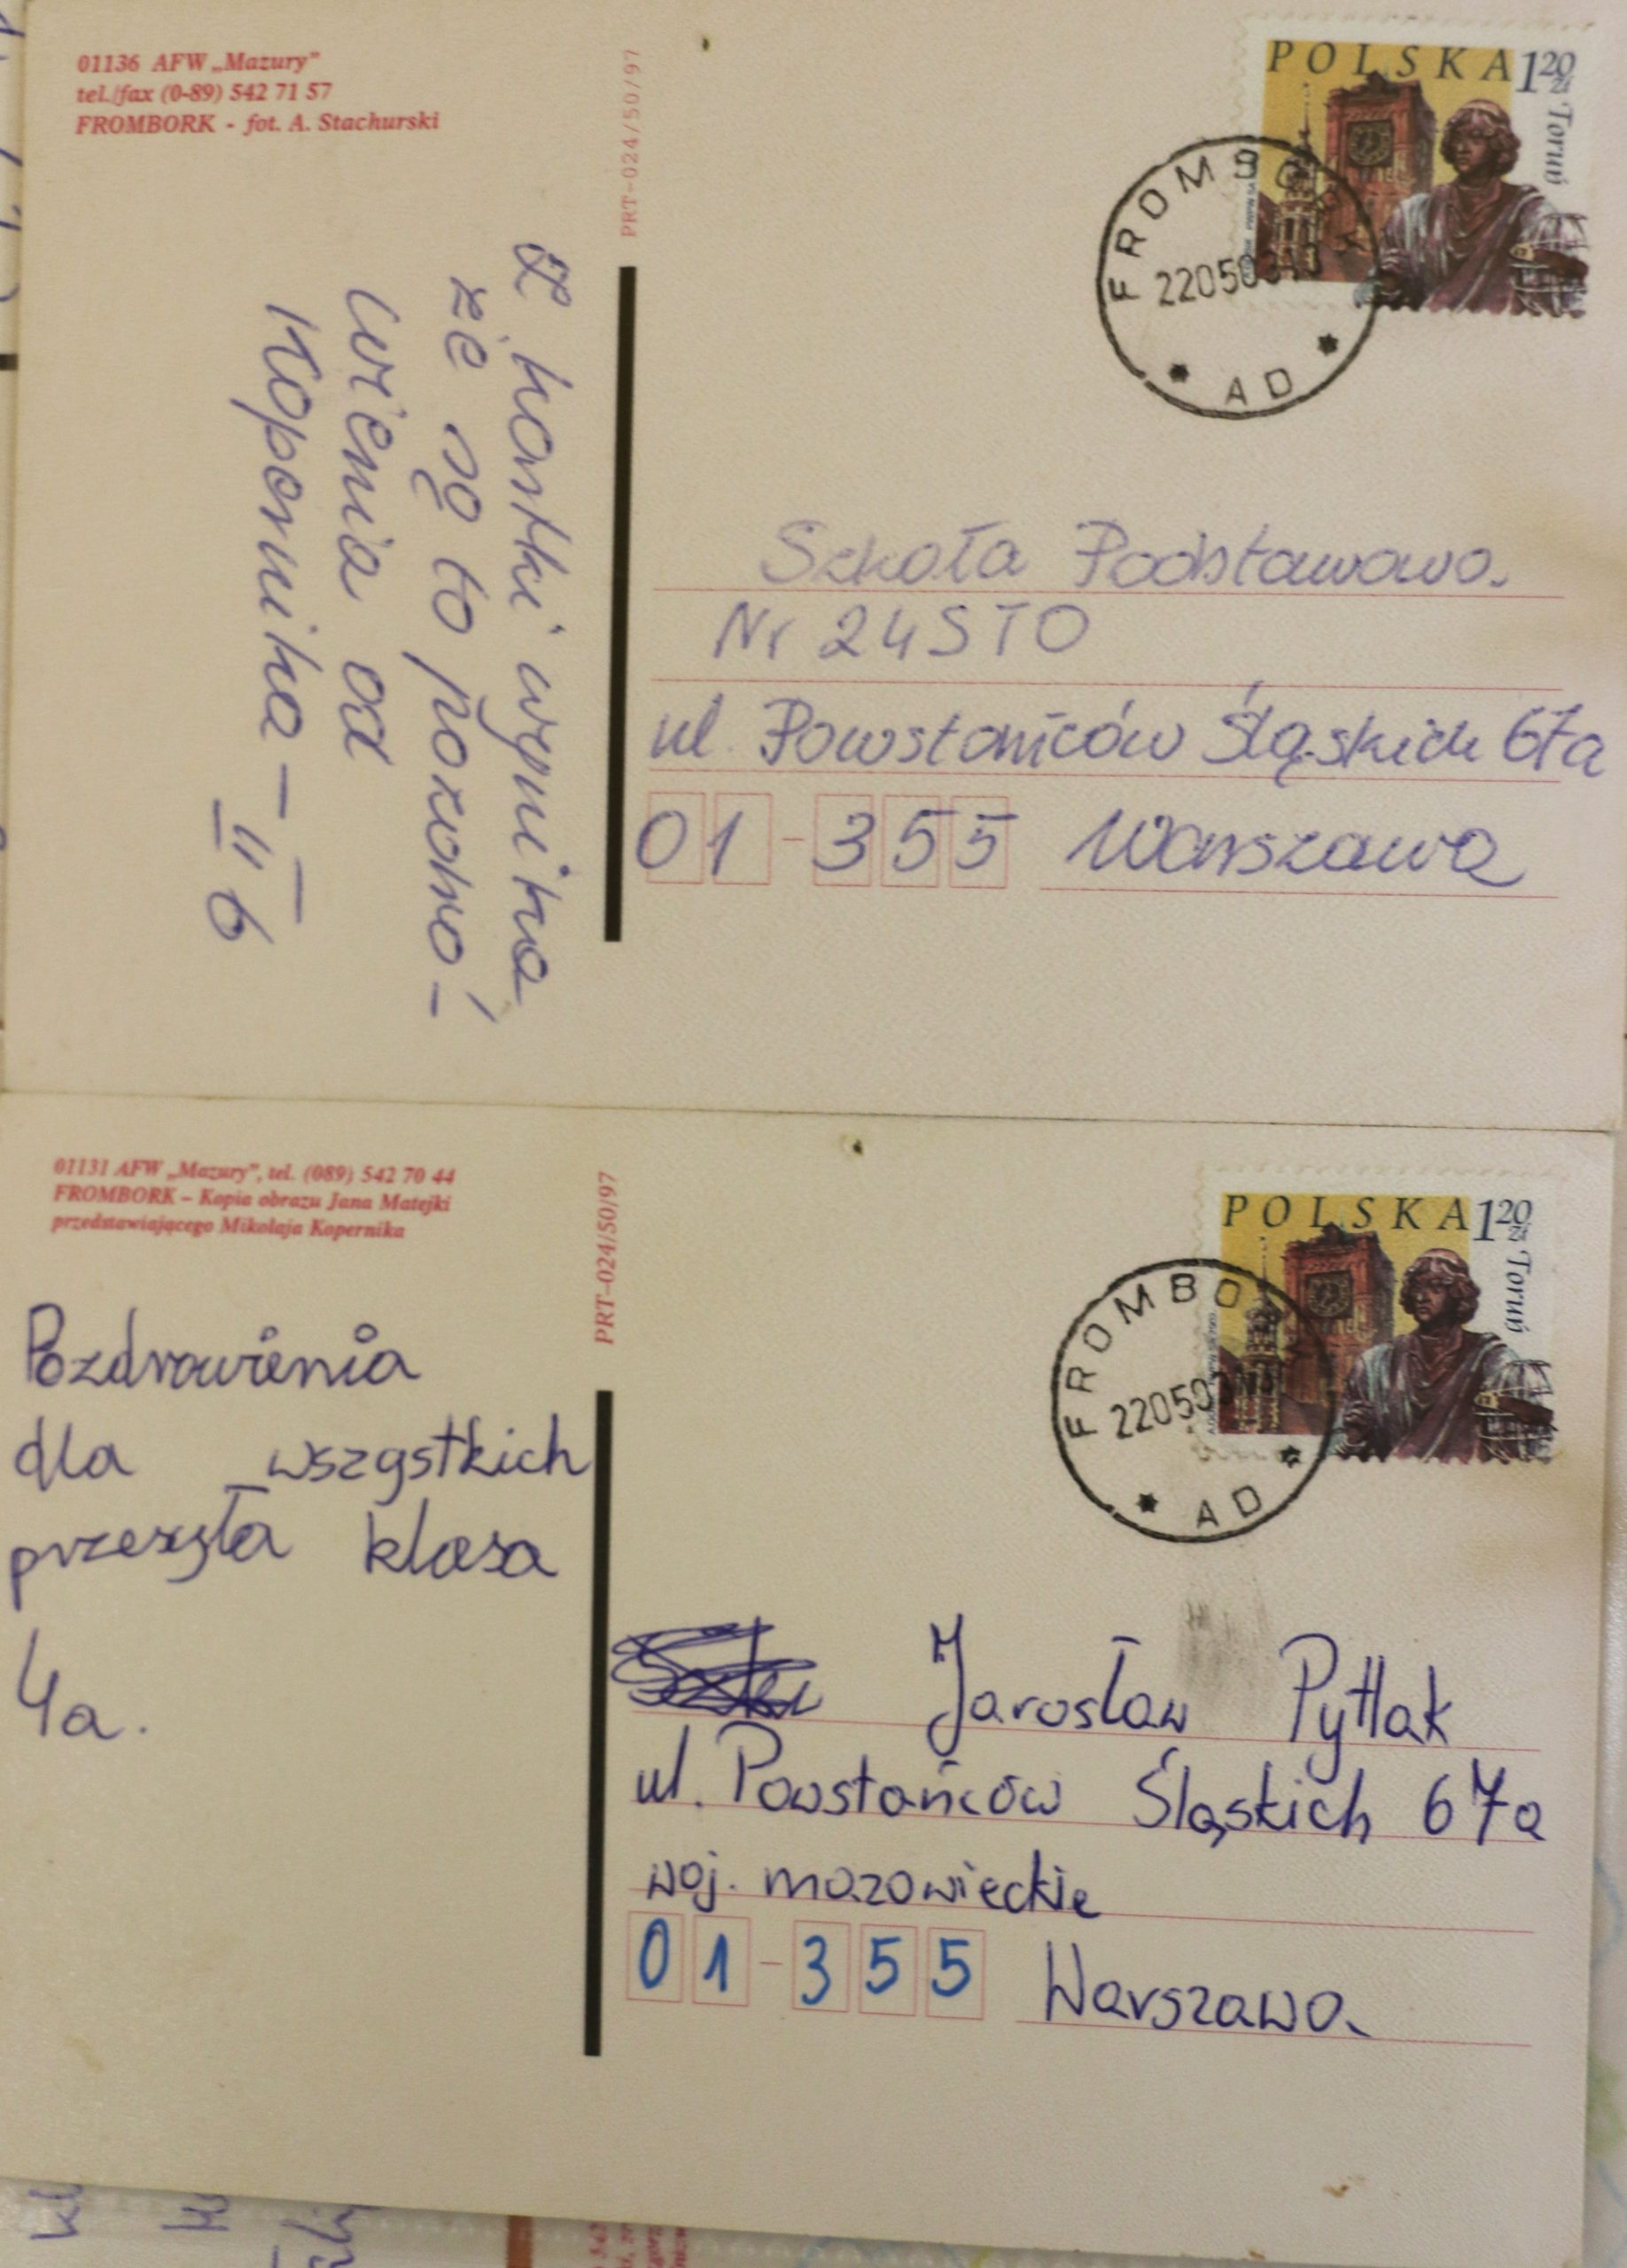 01136 AFW „Mazury”
tel./fax (0-89) 542 71 57
FROMBORK - fot. A. Stachurski
PRT-024/50/97
POLSKA 1 20 zł
Toruń
FROMBORK
220503
AD
Z kartki wynika,
że są to pozdro-
wienia od
Kopernika -
II b
Szkoła Podstawowa
Nr 24 STO
ul. Powstańców Śląskich 67a
01-355 Warszawa
01131 AFW „Mazury”, tel. (089) 542 70 44
FROMBORK – Kopia obrazu Jana Matejki
przedstawiającego Mikołaja Kopernika
PRT-024/50/97
POLSKA 1 20 zł
Toruń
FROMBO
220503
AD
Pozdrowienia
dla wszystkich
przesyła klasa
4a.
Jarosław Pytlak
ul. Powstańców Śląskich 67a
woj. mazowieckie
01-355 Warszawa